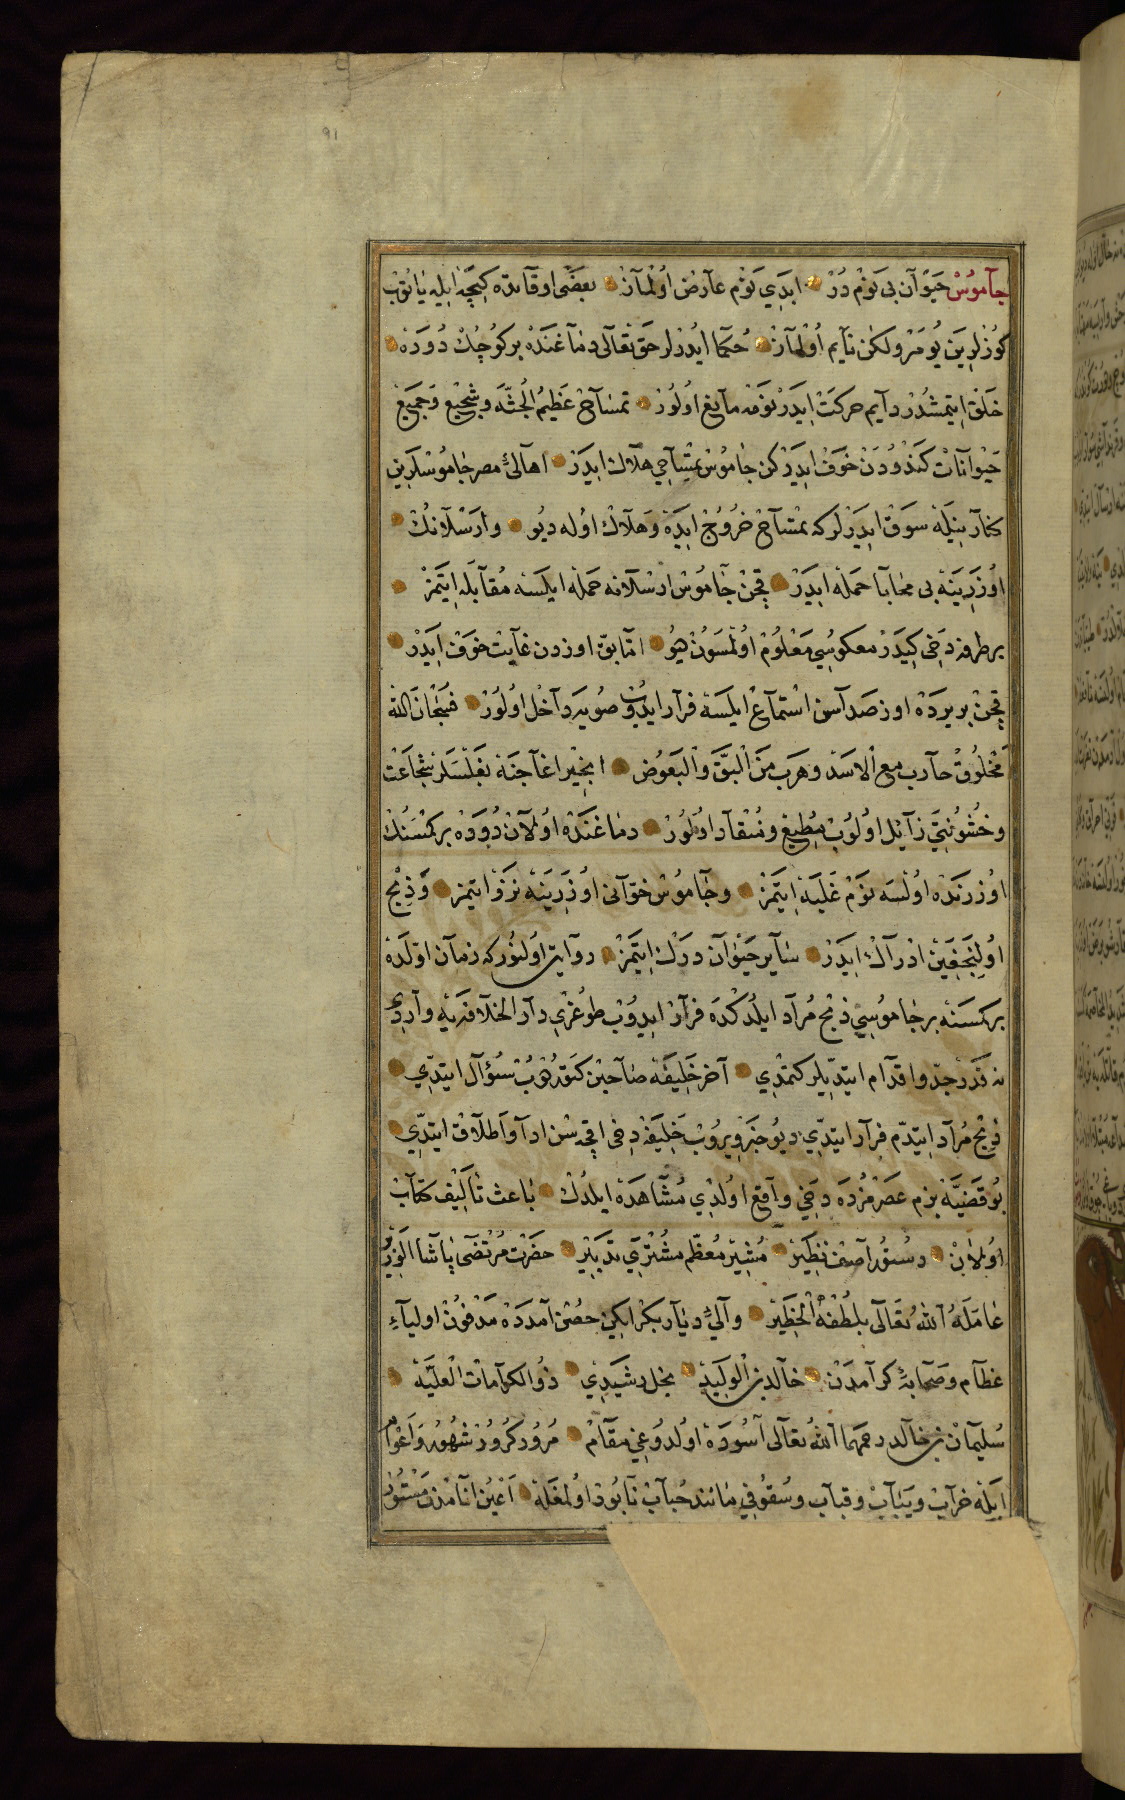 91
جاموس حيوان بی نومدر ابدی نوم عارض اولماز بعضی اوقاتده كيجه ايله ياتوب
كوزلرين يومر ولكن نايم اولماز حكما ايدرلر حق تعالى دماغنده بر كوچك دوده
خلق ايتمشدر دايم حركت ايدر نومه مانع اولور تمساح عظيم الجثه وشجيع وجميع
حيوانات كندودن خوف ايدركن جاموش تمساحی هلاك ايدر اهالئ مصر جاموشلرين
كنار نيله سوق ايدرلر كه تمساح خروج ايده وهلاك اوله ديو وارسلانك
اوزرينه بی محابا حمله ايدر قچن جاموش ارسلانه حمله ايلسه مقابله ايتمز
بر طرفه دخی كيدر معكوسی معلوم اولمسون هيو اما بق اوزدن غايت خوف ايدر
قچن بر يرده اوز صداسن استماع ايلسه فرار ايدوب صويه داخل اولور فسبحان الله
مخلوق حارب مع الاسد وهرب من البق والبعوض انجير اغاجنه بغلسلر شجاعت
وخشونتی زايل اولوب مطيع ومنقاد اولور دماغنده اولان دوده بر كمسنك
اوزرنده اولسه نوم غلبه ايتمز وجاموش خوانی اوزرينه نزو ايتمز وذبح
اولنجغين ادراك ايدر ساير حيوان درك ايتمز روايت اولنور كه زمان اولده
بر كمسنه بر جاموسی ذبح مراد ايلدكده فرار ايدوب طوغری دار الخلافه يه واردی
نه قدر جد واقدام ايتديلر كتمدی آخر خليفه صاحبن كتوردوب سؤال ايتدی
ذبح مراد ايتدم فرار ايتدی ديو خبر ويروب خليفه دخی اقچه سن ادا واطلاق ايتدی
بو قضيه بزم عصرمزده دخی واقع اولدی مشاهده ايلدك باعث تأليف كتاب
اولان دستور آصف نظير مشير معظم مشتری تدبير حضرت مرتضی پاشا الوزير
عامله الله تعالى بلطفه الخطير والی ديار بكر ايكن حصن آمدده مدفون اولياء
عظام وصحابهٔ كرامدن خالد بن الوليد نجل رشيدی ذو الكرامات العليه
سليمان بن خالد رحمهما الله تعالى آسوده اولدوغی مقام مرور كرور شهور واعوام
ايله خراب ويباب وقباب وسقوفی مانند حباب نابود اولمغله اعين انامدن مستور